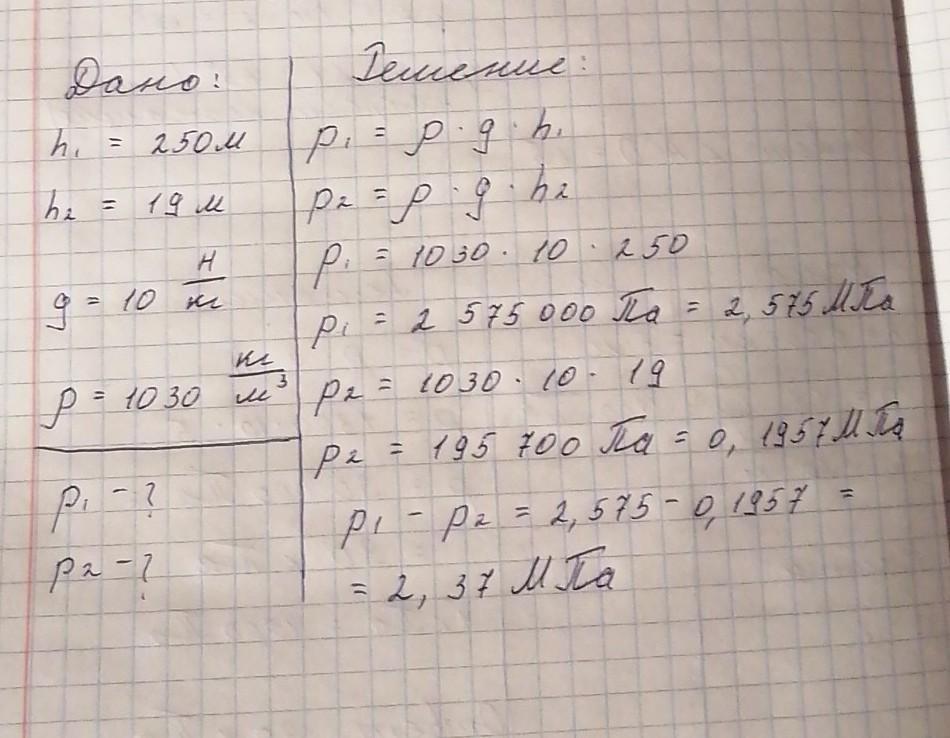 Дано:
h₁ = 250 м
h₂ = 19 м
g = 10 Н/кг
ρ = 1030 кг/м³
p₁ - ?
p₂ - ?
Решение:
p₁ = ρ · g · h₁
p₂ = ρ · g · h₂
p₁ = 1030 · 10 · 250
p₁ = 2 575 000 Па = 2,575 МПа
p₂ = 1030 · 10 · 19
p₂ = 195 700 Па = 0,1957 МПа
p₁ - p₂ = 2,575 - 0,1957 =
= 2,37 МПа